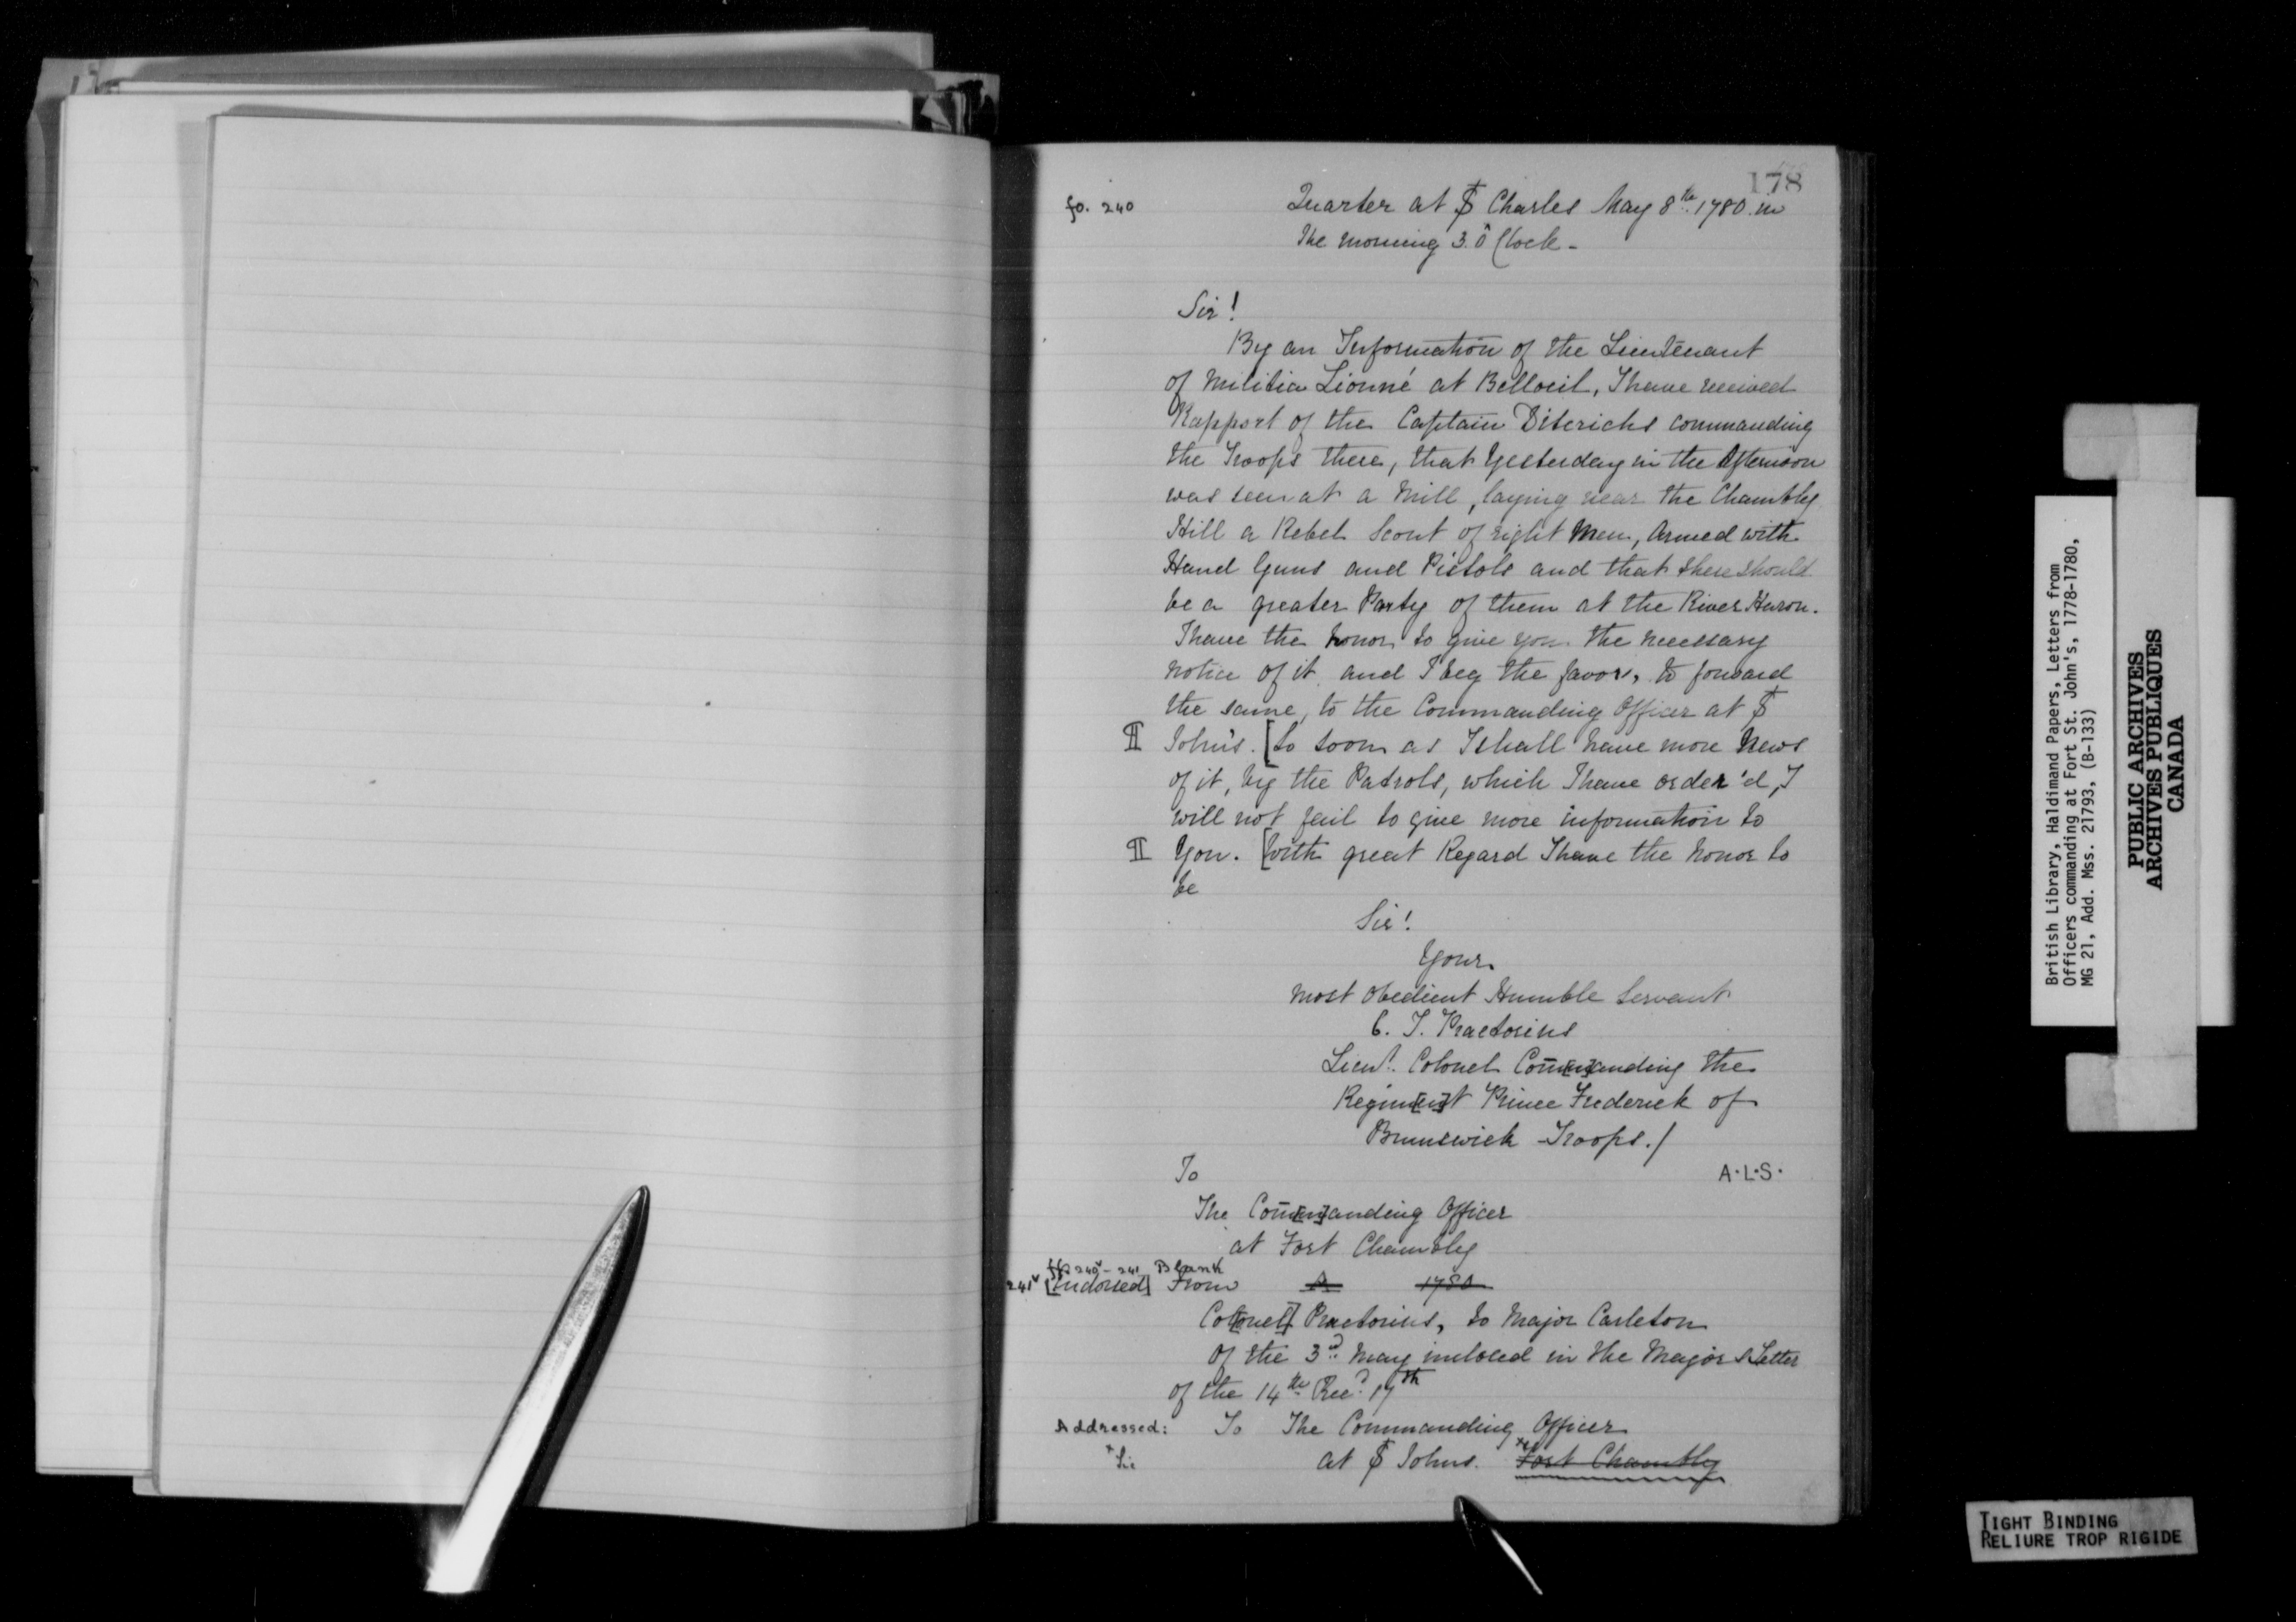 178
fo. 240
Quarter at St Charles May 8th 1780. in
the morning 3. O Clock -
Sir!
By an Information of the Lieutenant
of Militia Lionné at Belloeil, I have received
Rapport of the Captain Diterichs commanding
the Troops there, that Yesterday in the Afternoon
was seen at a Mill, laying near the Chambly
Hill a Rebel Scout of eight Men, Armed with
Hand Guns and Pistols and that there should
be a greater Party of them at the River Huron.
I have the honor to give you the necessary
notice of it and I beg the favor, to forward
the same, to the Commanding Officer at St
¶ John's. [So soon as I shall have more News
of it, by the Patrols, which I have order'd, I
will not fail to give more information to
¶ You. [With great Regard I have the honor to
be
Sir!
Your
most obedient Humble Servant
C. J. Praetorius
Lieut. Colonel Com[m]anding the
Regim[en]t Prince Frederick of
Brunswick Troops./
To
A.L.S.
The Com[m]anding Officer
at Fort Chambly
ff 240v - 241 Blank
241v [Endorsed] From A 1780
Col[onel] Praetorius, to Major Carleton
of the 3d. May inclosed in the Majors Letter
of the 14th Recd. 17th
Addressed: To The Commanding Officer
at St Johns. x Fort Chambly
x Sic
British Library, Haldimand Papers, Letters from
Officers commanding at Fort St. John's, 1778-1780,
MG 21, Add. Mss. 21793, (B-133)
PUBLIC ARCHIVES
ARCHIVES PUBLIQUES
CANADA
TIGHT BINDING
RELIURE TROP RIGIDE